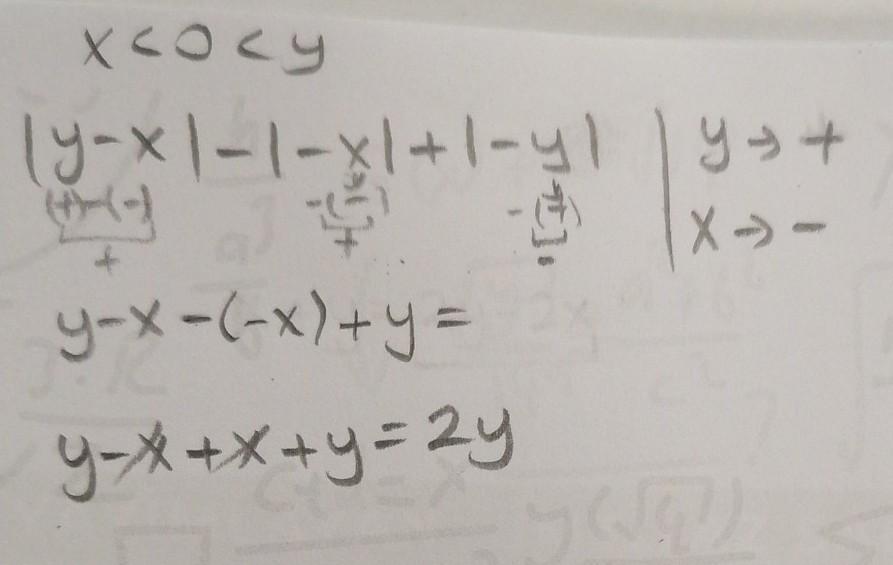 x < 0 < y
|y-x|-|-x|+|-y| | y → +
(+)-(-) -(-) -(+) | x → -
+ + -
y-x-(-x)+y=
y-x+x+y=2y